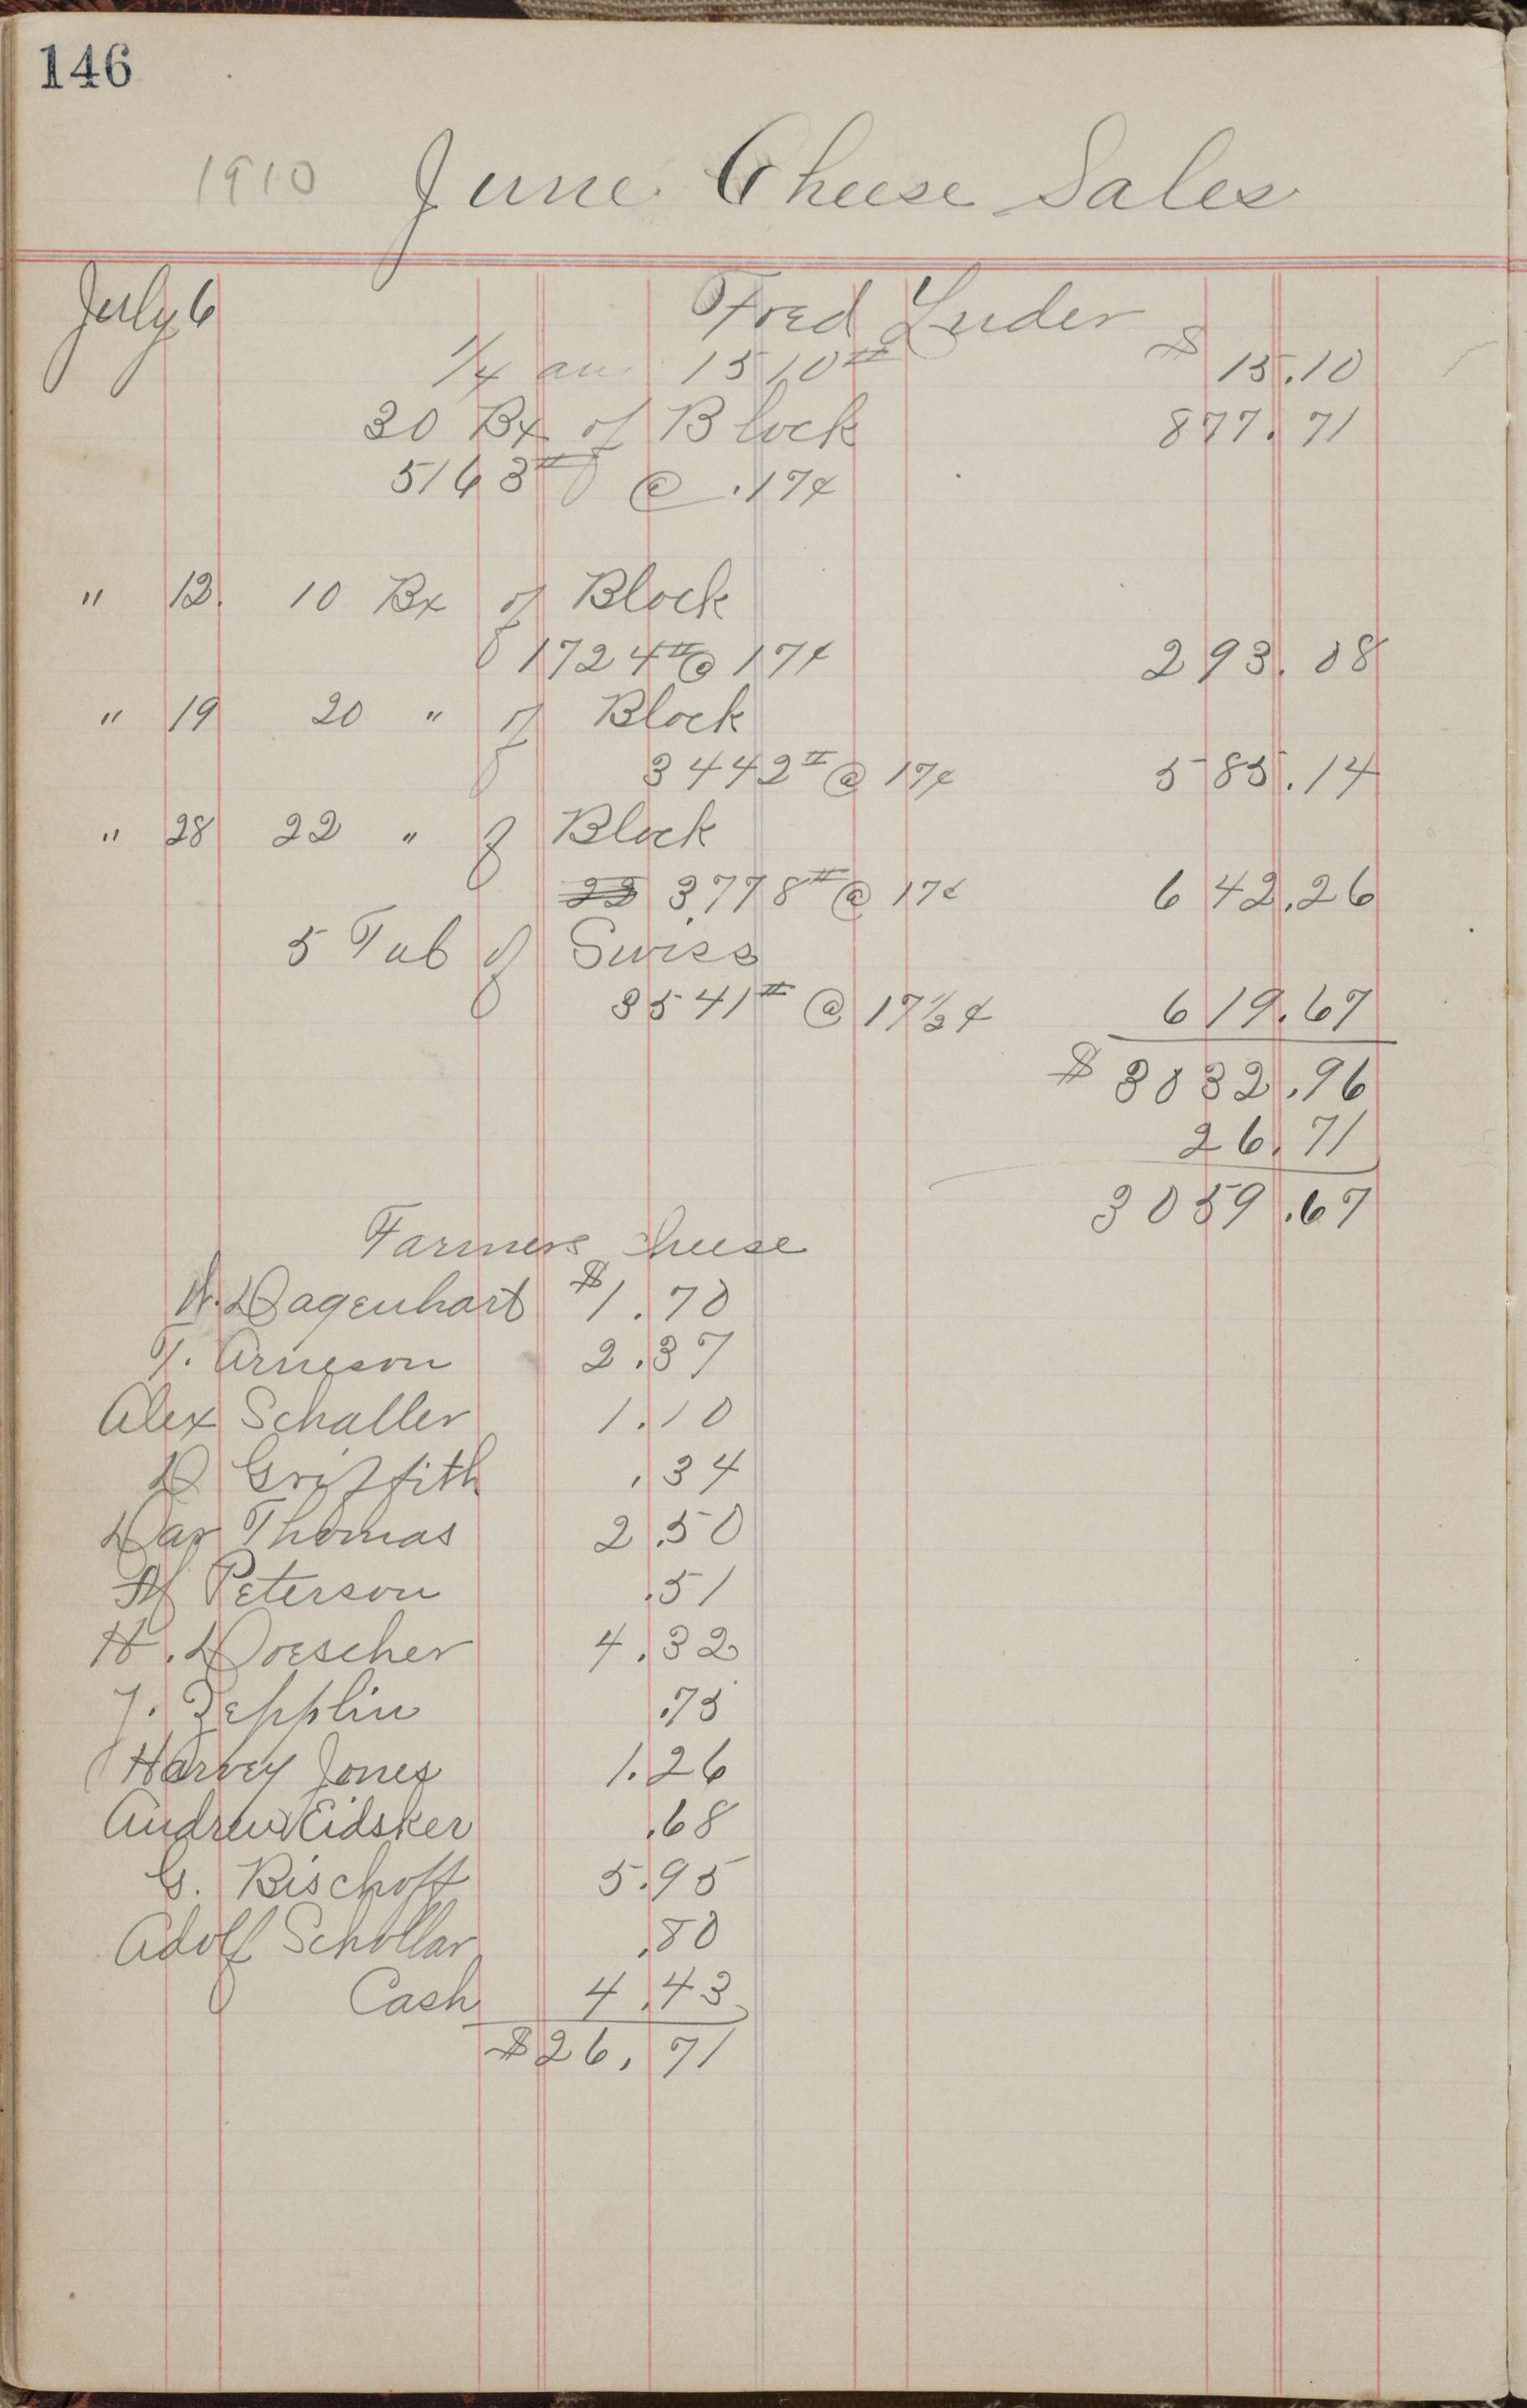 146
1910 June Cheese Sales
July 6 Fred Luder
1/4 on 1510# $15.10
30 Bx of Block 877.71
5163# @ .17¢
" 12. 10 Bx of Block
1724# @ 17¢ 293.08
" 19 20 " of Block
3442# @ 17¢ 585.14
" 28 22 " of Block
22 3778# @ 17¢ 642.26
5 Tub of Swiss
3541# @ 17 1/2¢ 619.67
$3032.96
26.71
3059.67
Farmers cheese
W. Dagenhart $1.70
T. Arneson 2.37
Alex Schaller 1.10
D Griffith .34
Dav Thomas 2.50
Peterson .51
H. Doescher 4.32
J. Zepplin .75
Harvey Jones 1.26
Andrew Eidsker .68
G. Bischoff 5.95
Adolf Schollar .80
Cash 4.43
$26.71